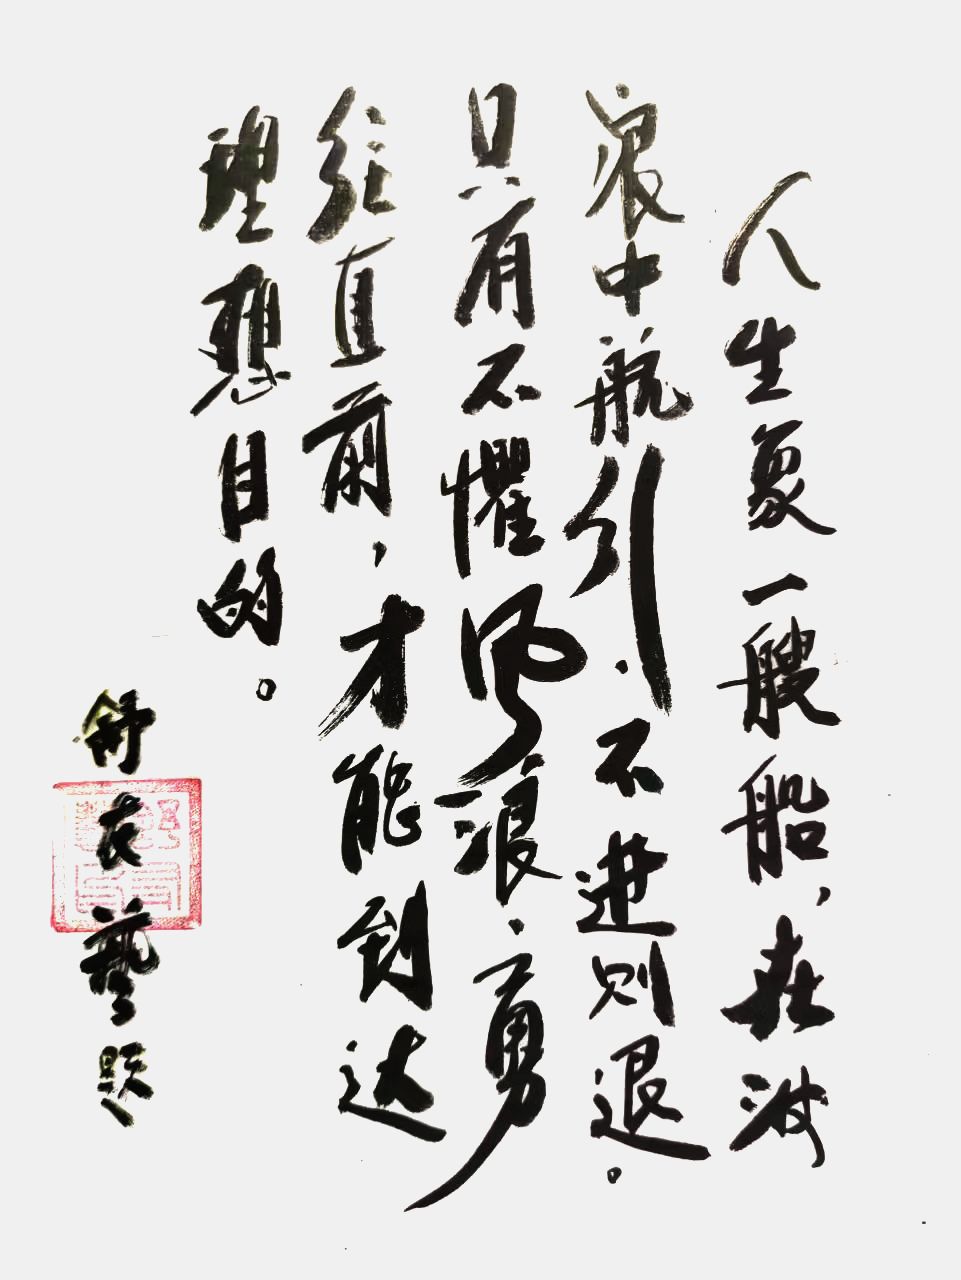 人生象一艘船，在波
浪中航引，不进则退。
只有不惧风浪，勇
往直前，才能到达
理想目的。
舒衣艺题